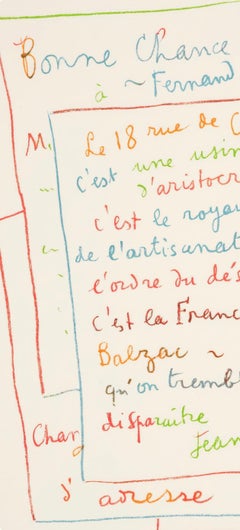 Bonne Chance
à ~ Fernand
M.
Le 18 rue de
C'est une usin
d'aristocr
c'est le royau
de l'artisanat
l'ordre du dés
C'est la Franc
Balzac ~
qu'on trembl
disparaître
Jean
Chang
d' adresse